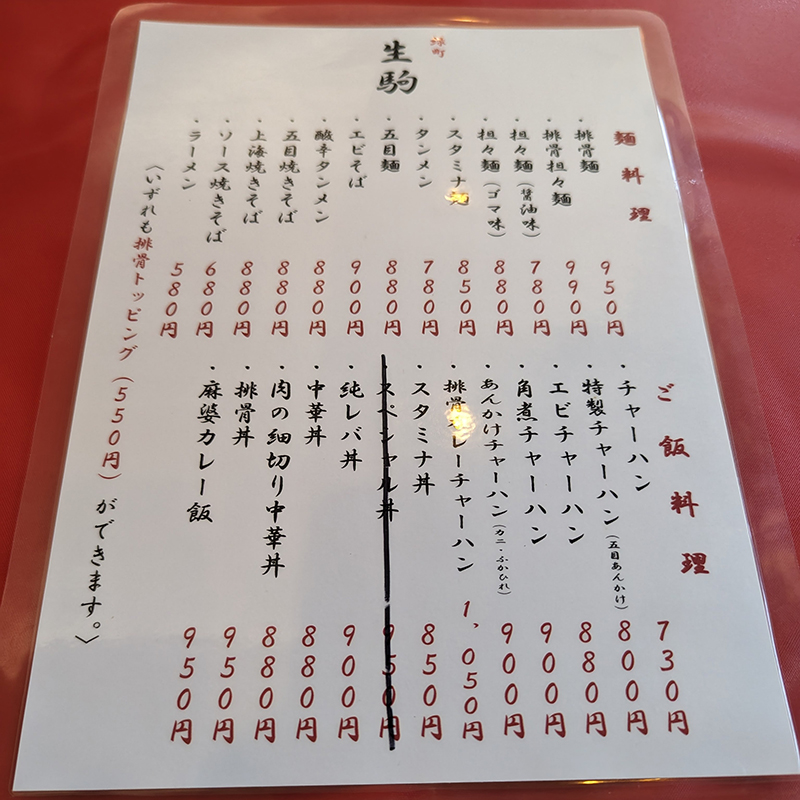 緑町
生駒
麺料理
・排骨麺 950円
・排骨担々麺 990円
・担々麺（醤油味） 780円
・担々麺（ゴマ味） 880円
・スタミナ麺 850円
・タンメン 780円
・五目麺 880円
・エビそば 900円
・酸辛タンメン 880円
・五目焼きそば 880円
・上海焼きそば 880円
・ソース焼きそば 680円
・ラーメン 580円
ご飯料理
・チャーハン 730円
・特製チャーハン（五目あんかけ） 800円
・エビチャーハン 880円
・角煮チャーハン 900円
・あんかけチャーハン（カニ・ふかひれ） 900円
・排骨カレーチャーハン 1,050円
・スタミナ丼 850円
・スペシャル丼 950円
・純レバ丼 900円
・中華丼 880円
・肉の細切り中華丼 880円
・排骨丼 950円
・麻婆カレー飯 950円
〈いずれも排骨トッピング（550円）ができます。〉